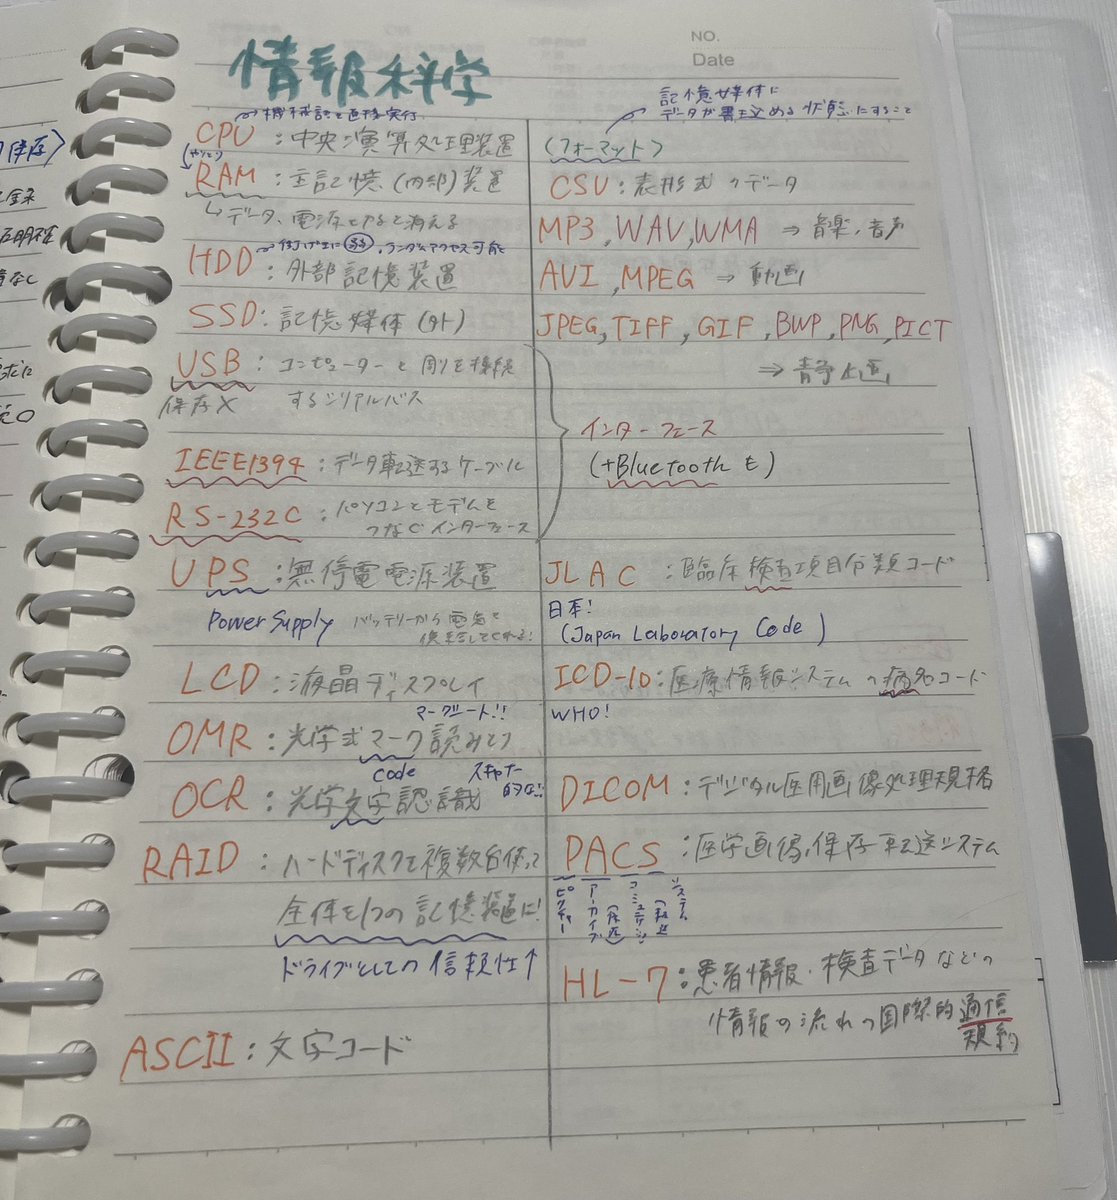 NO.
Date
情報科学
機械語を直接実行
CPU：中央演算処理装置
やりとり
RAM：主記憶(内部)装置
↳データ、電源とかると消える
衝げきに弱,ランダムアクセス可能
HDD：外部記憶装置
SSD：記憶媒体(外)
USB：コンピューターと周りを接続
保存× するシリアルバス
IEEE1394：データ転送するケーブル
RS-232C：パソコンとモデムを
つなぐインターフェース
インターフェース
(+Bluetoothも)
UPS：無停電電源装置
Power Supply バッテリーから電気を
供給してくれる!
LCD：液晶ディスプレイ
マークシート!!
OMR：光学式マーク読みとり
code スキャナー
的な!!
OCR：光学文字認識
RAID：ハードディスクを複数台使って
全体を1つの記憶装置に!
ドライブとしての信頼性↑
ASCII：文字コード
記憶媒体に
データが書き込める状態にすること
〈フォーマット〉
CSV：表形式のデータ
MP3,WAV,WMA ⇒ 音楽,音声
AVI,MPEG ⇒ 動画
JPEG,TIFF,GIF,BWP,PNG,PICT
⇒ 静止画
JLAC：臨床検査項目分類コード
日本!
(Japan Laboratory Code)
ICD-10：医療情報システムの病名コード
WHO!
DICOM：デジタル医用画像処理規格
PACS：医学画像,保存転送システム
ピクチャー
アーカイブ
コミュニケーション
システム
HL-7：患者情報・検査データなどの
情報の流れの国際的通信
規約